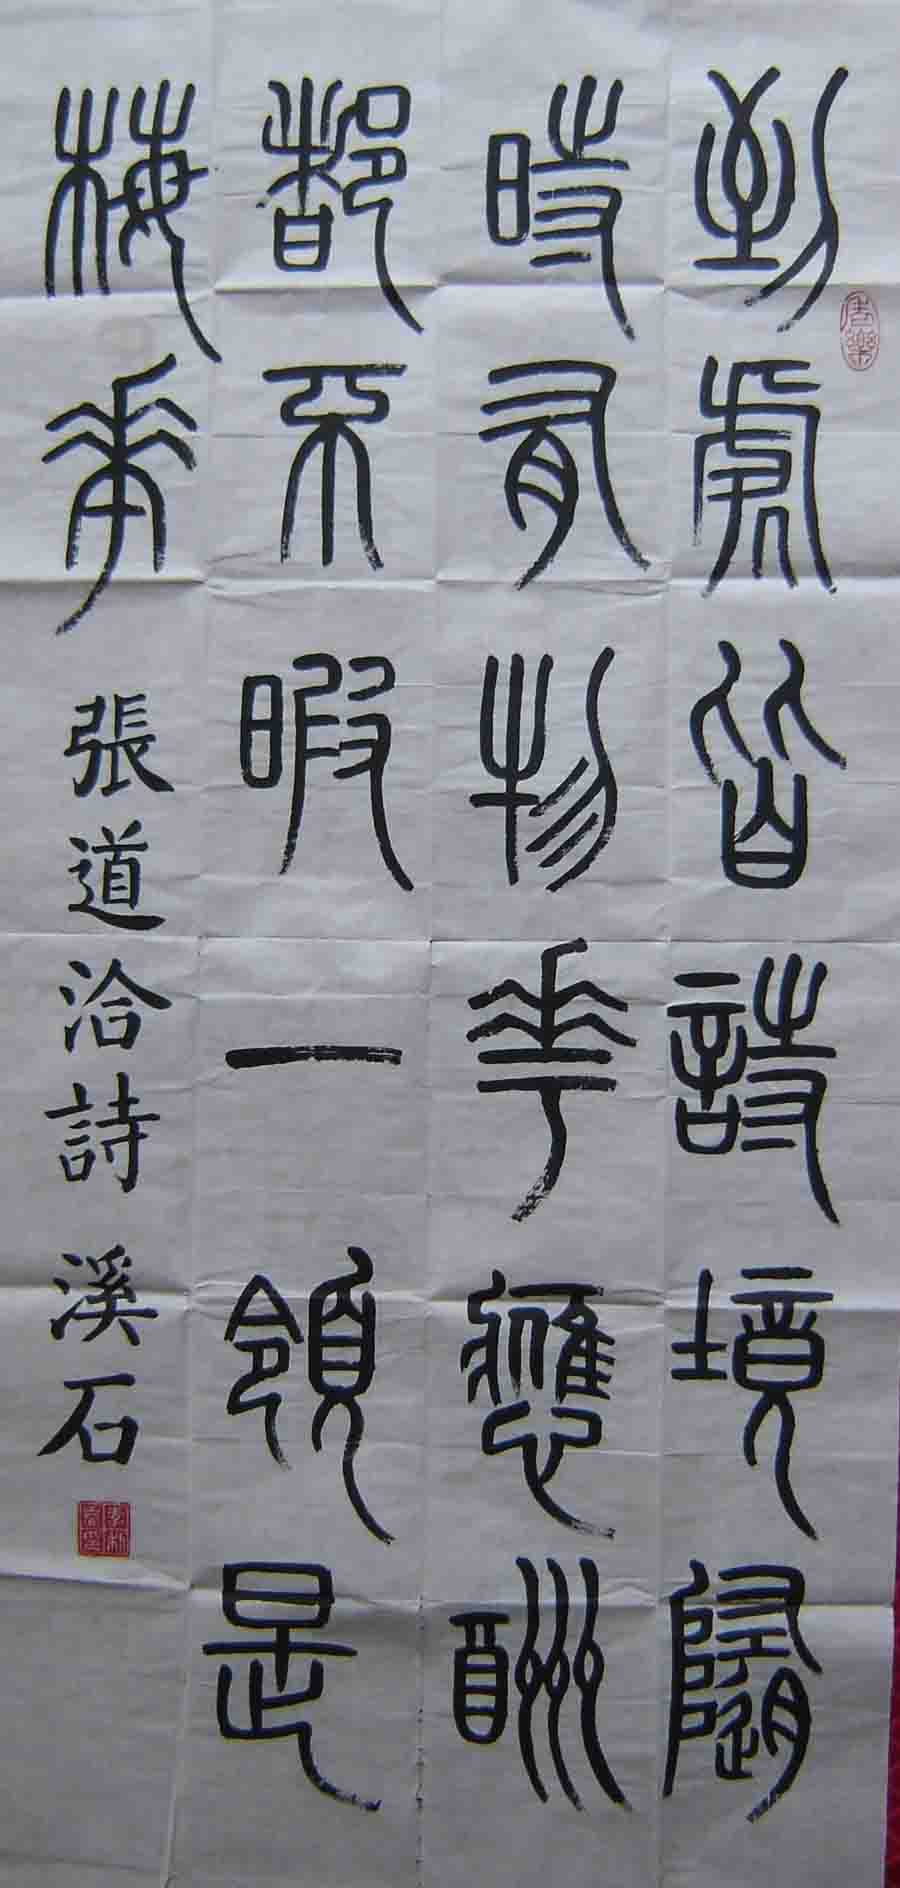 到處皆詩境隨
時有物華應酬
都不暇一領是
梅花
張道洽詩 溪石